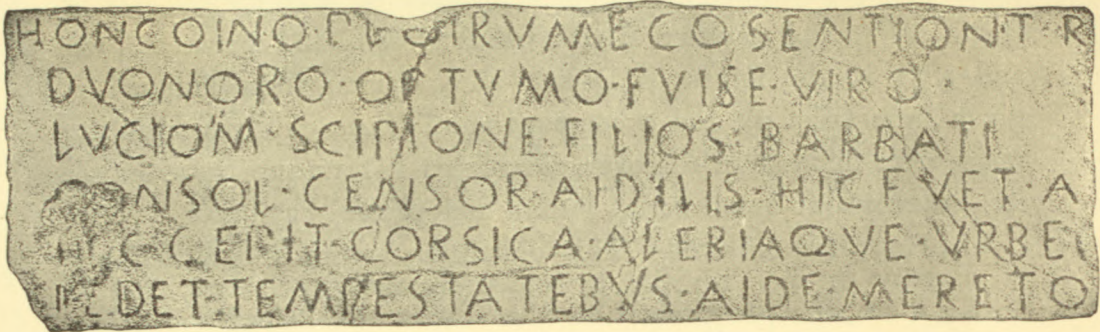 HONCOINO·PLOIRVMECOSENTIONT·R
DVONORO·OPTVMO·FVISE·VIRO
LVCIOM·SCIPIONE·FILIOS·BARBATI
CONSOL·CENSOR·AIDILIS·HIC·FVET·A
HEC·CEPIT·CORSICA·ALERIAQVE·VRBE
DEDET·TEMPESTATEBVS·AIDE·MERETO